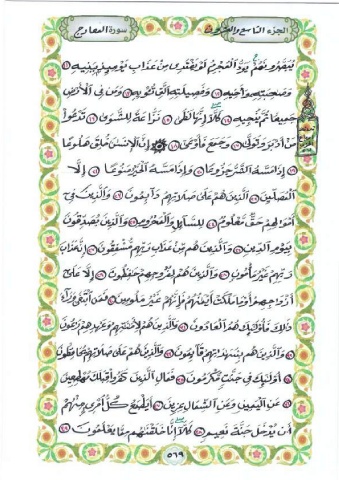 سورة المعارج الجزء التاسع والعشرون
يُبَصَّرُونَهُمْ يَوَدُّ الْمُجْرِمُ لَوْ يَفْتَدِي مِنْ عَذَابِ يَوْمِئِذٍ بِبَنِيهِ ١١
وَصَاحِبَتِهِ وَأَخِيهِ ١٢ وَفَصِيلَتِهِ الَّتِي تُؤْوِيهِ ١٣ وَمَنْ فِي الْأَرْضِ
جَمِيعًا ثُمَّ يُنْجِيهِ ١٤ كَلَّا إِنَّهَا لَظَى ١٥ نَزَّاعَةً لِلشَّوَى ١٦ تَدْعُوا
مَنْ أَدْبَرَ وَتَوَلَّى ١٧ وَجَمَعَ فَأَوْعَى ١٨ إِنَّ الْإِنْسَانَ خُلِقَ هَلُوعًا
١٩ إِذَا مَسَّهُ الشَّرُّ جَزُوعًا ٢٠ وَإِذَا مَسَّهُ الْخَيْرُ مَنُوعًا ٢١ إِلَّا
الْمُصَلِّينَ ٢٢ الَّذِينَ هُمْ عَلَى صَلَاتِهِمْ دَائِمُونَ ٢٣ وَالَّذِينَ فِي
أَمْوَالِهِمْ حَقٌّ مَعْلُومٌ ٢٤ لِلسَّائِلِ وَالْمَحْرُومِ ٢٥ وَالَّذِينَ يُصَدِّقُونَ
بِيَوْمِ الدِّينِ ٢٦ وَالَّذِينَ هُمْ مِنْ عَذَابِ رَبِّهِمْ مُشْفِقُونَ ٢٧ إِنَّ عَذَابَ
رَبِّهِمْ غَيْرُ مَأْمُونٍ ٢٨ وَالَّذِينَ هُمْ لِفُرُوجِهِمْ حَافِظُونَ ٢٩ إِلَّا عَلَى
أَزْوَاجِهِمْ أَوْ مَا مَلَكَتْ أَيْمَانُهُمْ فَإِنَّهُمْ غَيْرُ مَلُومِينَ ٣٠ فَمَنِ ابْتَغَى وَرَاءَ
ذَلِكَ فَأُولَئِكَ هُمُ الْعَادُونَ ٣١ وَالَّذِينَ هُمْ لِأَمَانَاتِهِمْ وَعَهْدِهِمْ رَاعُونَ
٣٢ وَالَّذِينَ هُمْ بِشَهَادَاتِهِمْ قَائِمُونَ ٣٣ وَالَّذِينَ هُمْ عَلَى صَلَاتِهِمْ يُحَافِظُونَ
٣٤ أُولَئِكَ فِي جَنَّاتٍ مُكْرَمُونَ ٣٥ فَمَالِ الَّذِينَ كَفَرُوا قِبَلَكَ مُهْطِعِينَ
٣٦ عَنِ الْيَمِينِ وَعَنِ الشِّمَالِ عِزِينَ ٣٧ أَيَطْمَعُ كُلُّ امْرِئٍ مِنْهُمْ
أَنْ يُدْخَلَ جَنَّةَ نَعِيمٍ ٣٨ كَلَّا إِنَّا خَلَقْنَاهُمْ مِمَّا يَعْلَمُونَ ٣٩
٥٦٩